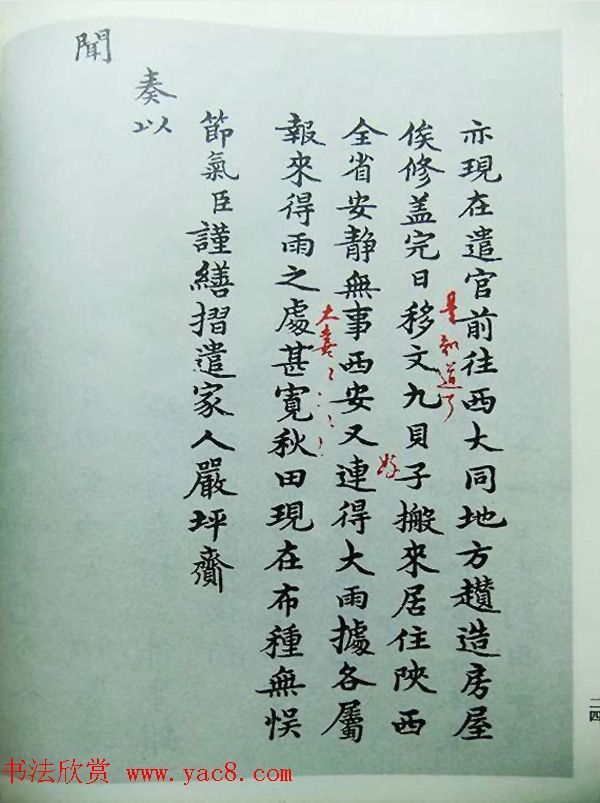 亦現在遣官前往西大同地方趲造房屋
是知道了
俟修盖完日移文九貝子搬來居住陝西
好
全省安静無事西安又連得大雨據各屬
大喜
報來得雨之處甚寬秋田現在布種無悮
節氣臣謹繕摺遣家人嚴坪齎
奏以
聞
二四
书法欣赏 www.yac8.com